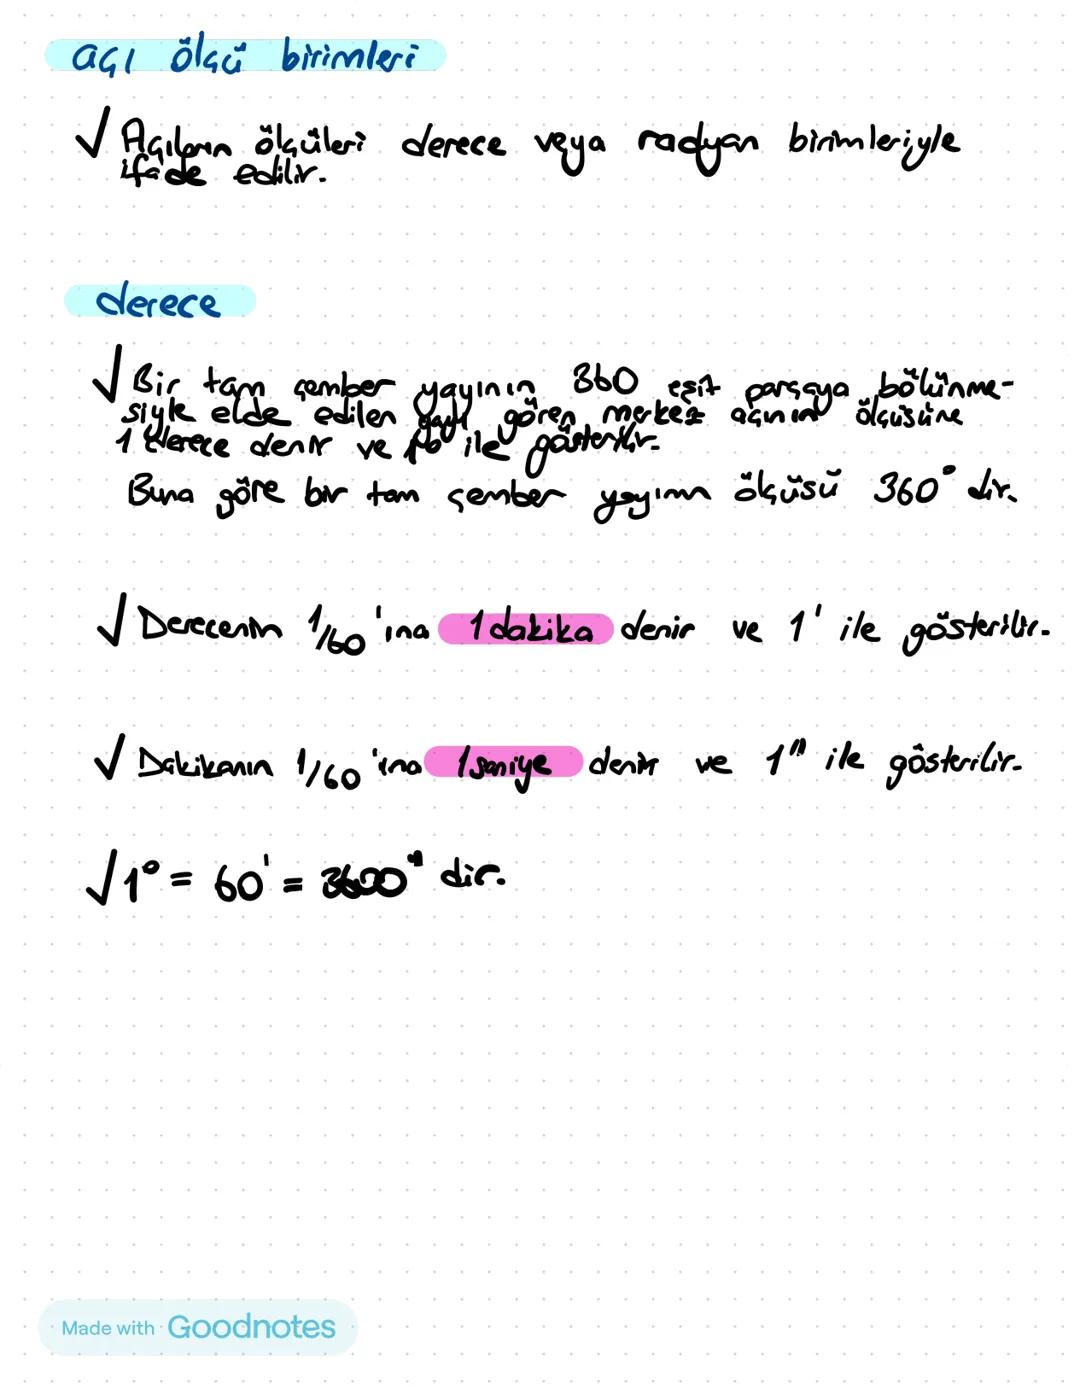 açı ölçü birimleri
√ Açıların ölçüleri derece veya radyan birimleriyle
ifade edilir.
derece
√ Bir tam çember yayının 360 eşit parçaya bölünme-
siyle elde edilen yayı gören merkez açının ölçüsüne
1 derece denir ve 1° ile gösterilir.
Buna göre bir tam çember yayının ölçüsü 360° dir.
√ Derecenin 1/60 'ına 1 dakika denir ve 1' ile gösterilir.
√ Dakikanın 1/60 'ına 1 saniye denir ve 1" ile gösterilir.
√ 1° = 60' = 3600" dir.
Made with Goodnotes